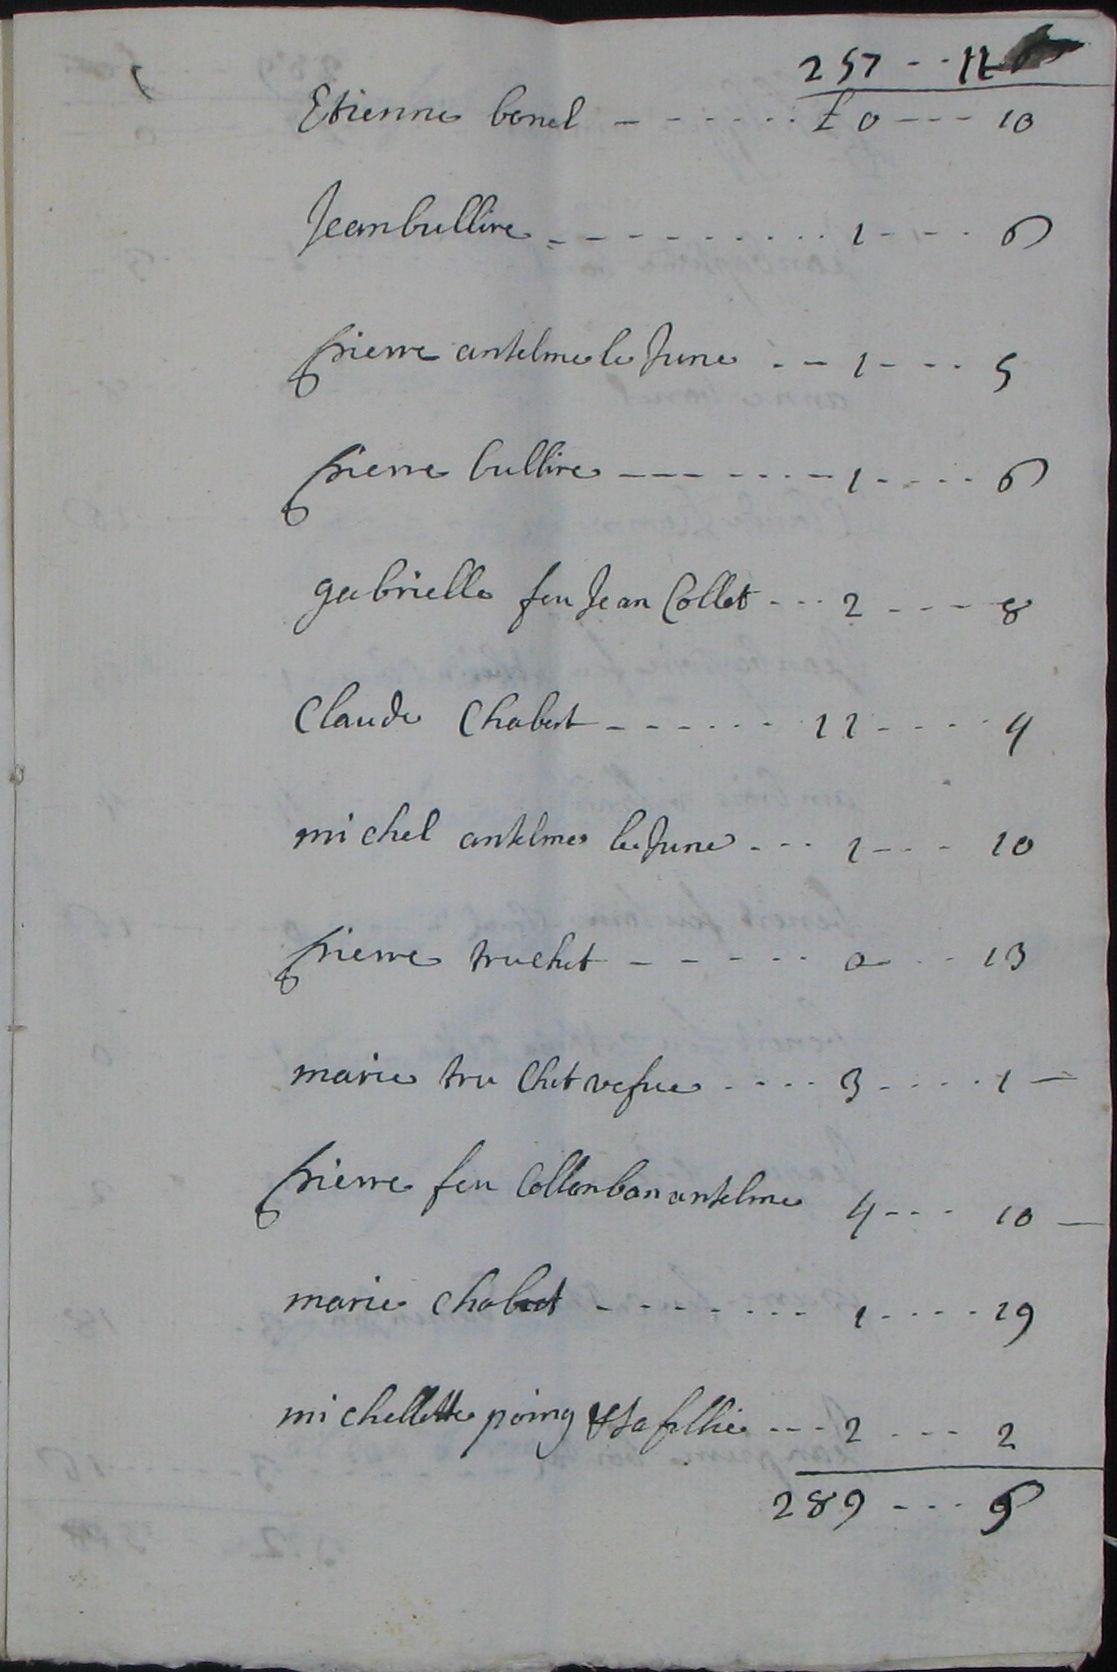 257 -- 11
Etienne bonel ------- £ 0 --- 10
Jean bullire ---------- 1 ---- 6
pierre antelme le June --- 1 ---- 5
pierre bullire ------- 1 ----- 6
gabrielle feu Jean Collet --- 2 ---- 8
Claude Chabert ------ 11 ---- 4
michel antelme le June --- 1 --- 10
pierre truchet ------ 0 --- 13
marie tru Chet vefue ---- 3 ---- 1 —
pierre feu Collonban antelme 4 --- 10 —
marie chabert -------- 1 ---- 19
michellette poing & sa fillie --- 2 ---- 2
289 ---